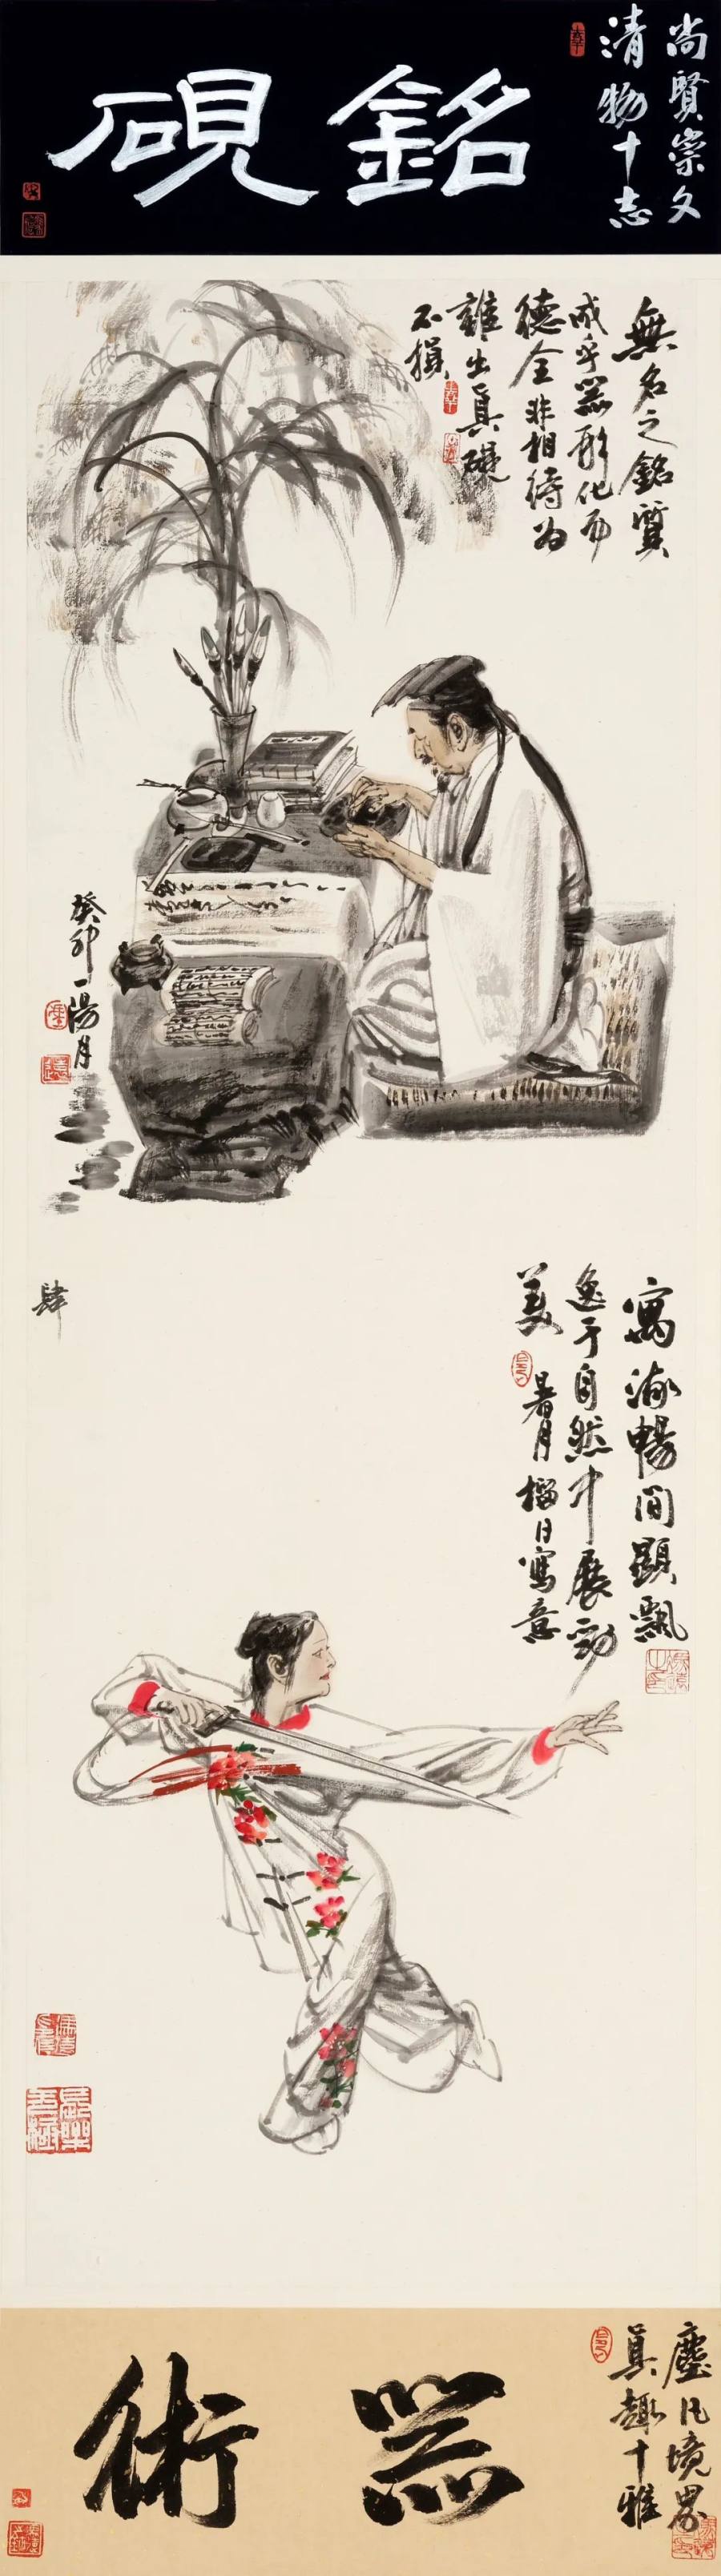 尚賢崇文
清物十志
銘硯
無名之銘質
成乎器形化而
德全非相待為
雖出真礎
不損
癸卯一陽月
肆
寓流暢間顯飄
逸于自然中展動
美
暑月榴日寫意
塵凡境界
真趣十雅
器術